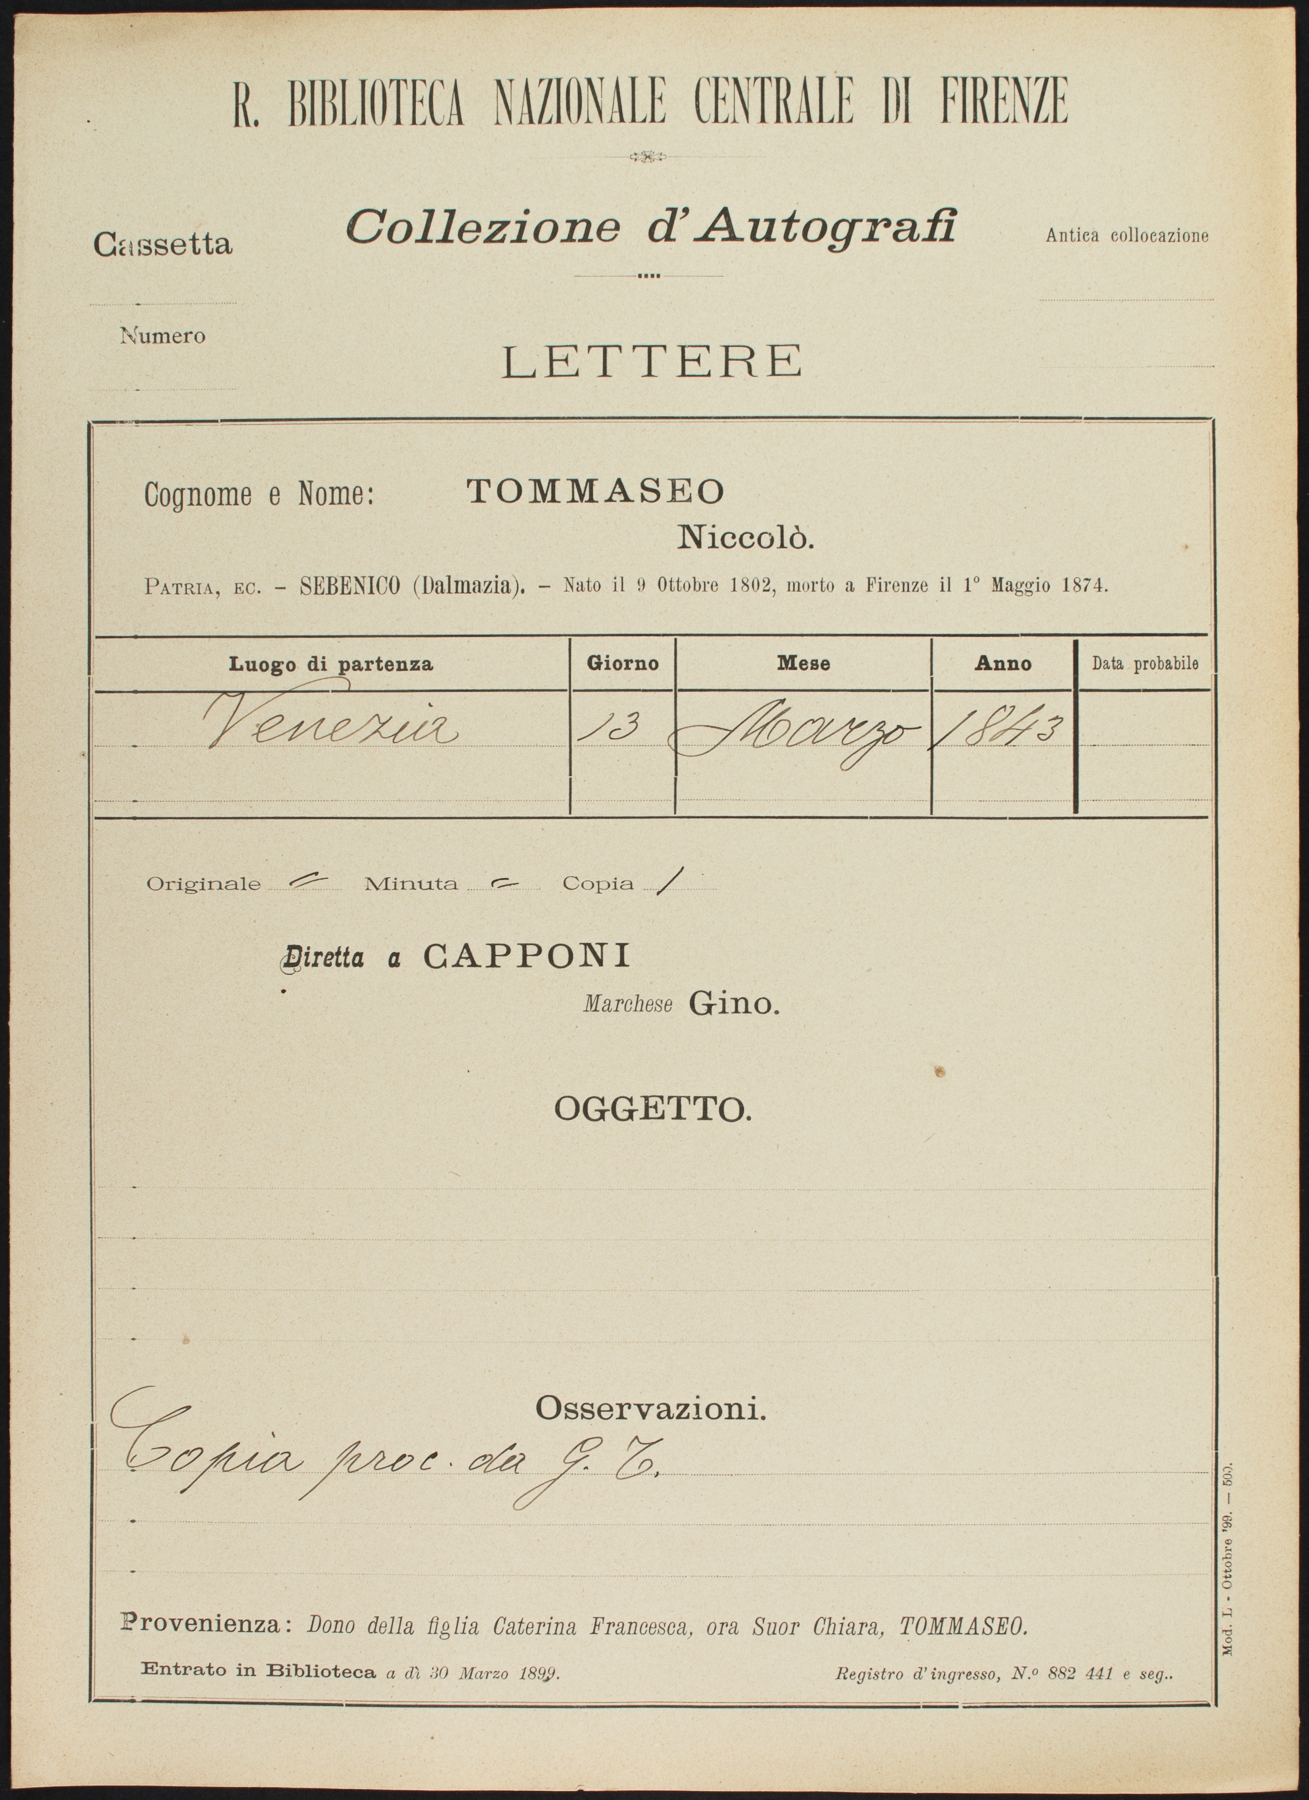 R. BIBLIOTECA NAZIONALE CENTRALE DI FIRENZE
Collezione d'Autografi
Cassetta
Antica collocazione
Numero
LETTERE
Cognome e Nome: TOMMASEO
Niccolò.
PATRIA, EC. - SEBENICO (Dalmazia). - Nato il 9 Ottobre 1802, morto a Firenze il 1º Maggio 1874.
Luogo di partenza Giorno Mese Anno Data probabile
Venezia 13 Marzo 1843
Originale = Minuta = Copia 1
Diretta a CAPPONI
Marchese Gino.
OGGETTO.
Osservazioni.
Copia proc. da G. T.
Provenienza: Dono della figlia Caterina Francesca, ora Suor Chiara, TOMMASEO.
Entrato in Biblioteca a dì 30 Marzo 1899. Registro d'ingresso, N.º 882 441 e seg..
Mod. L - Ottobre '99. — 500.